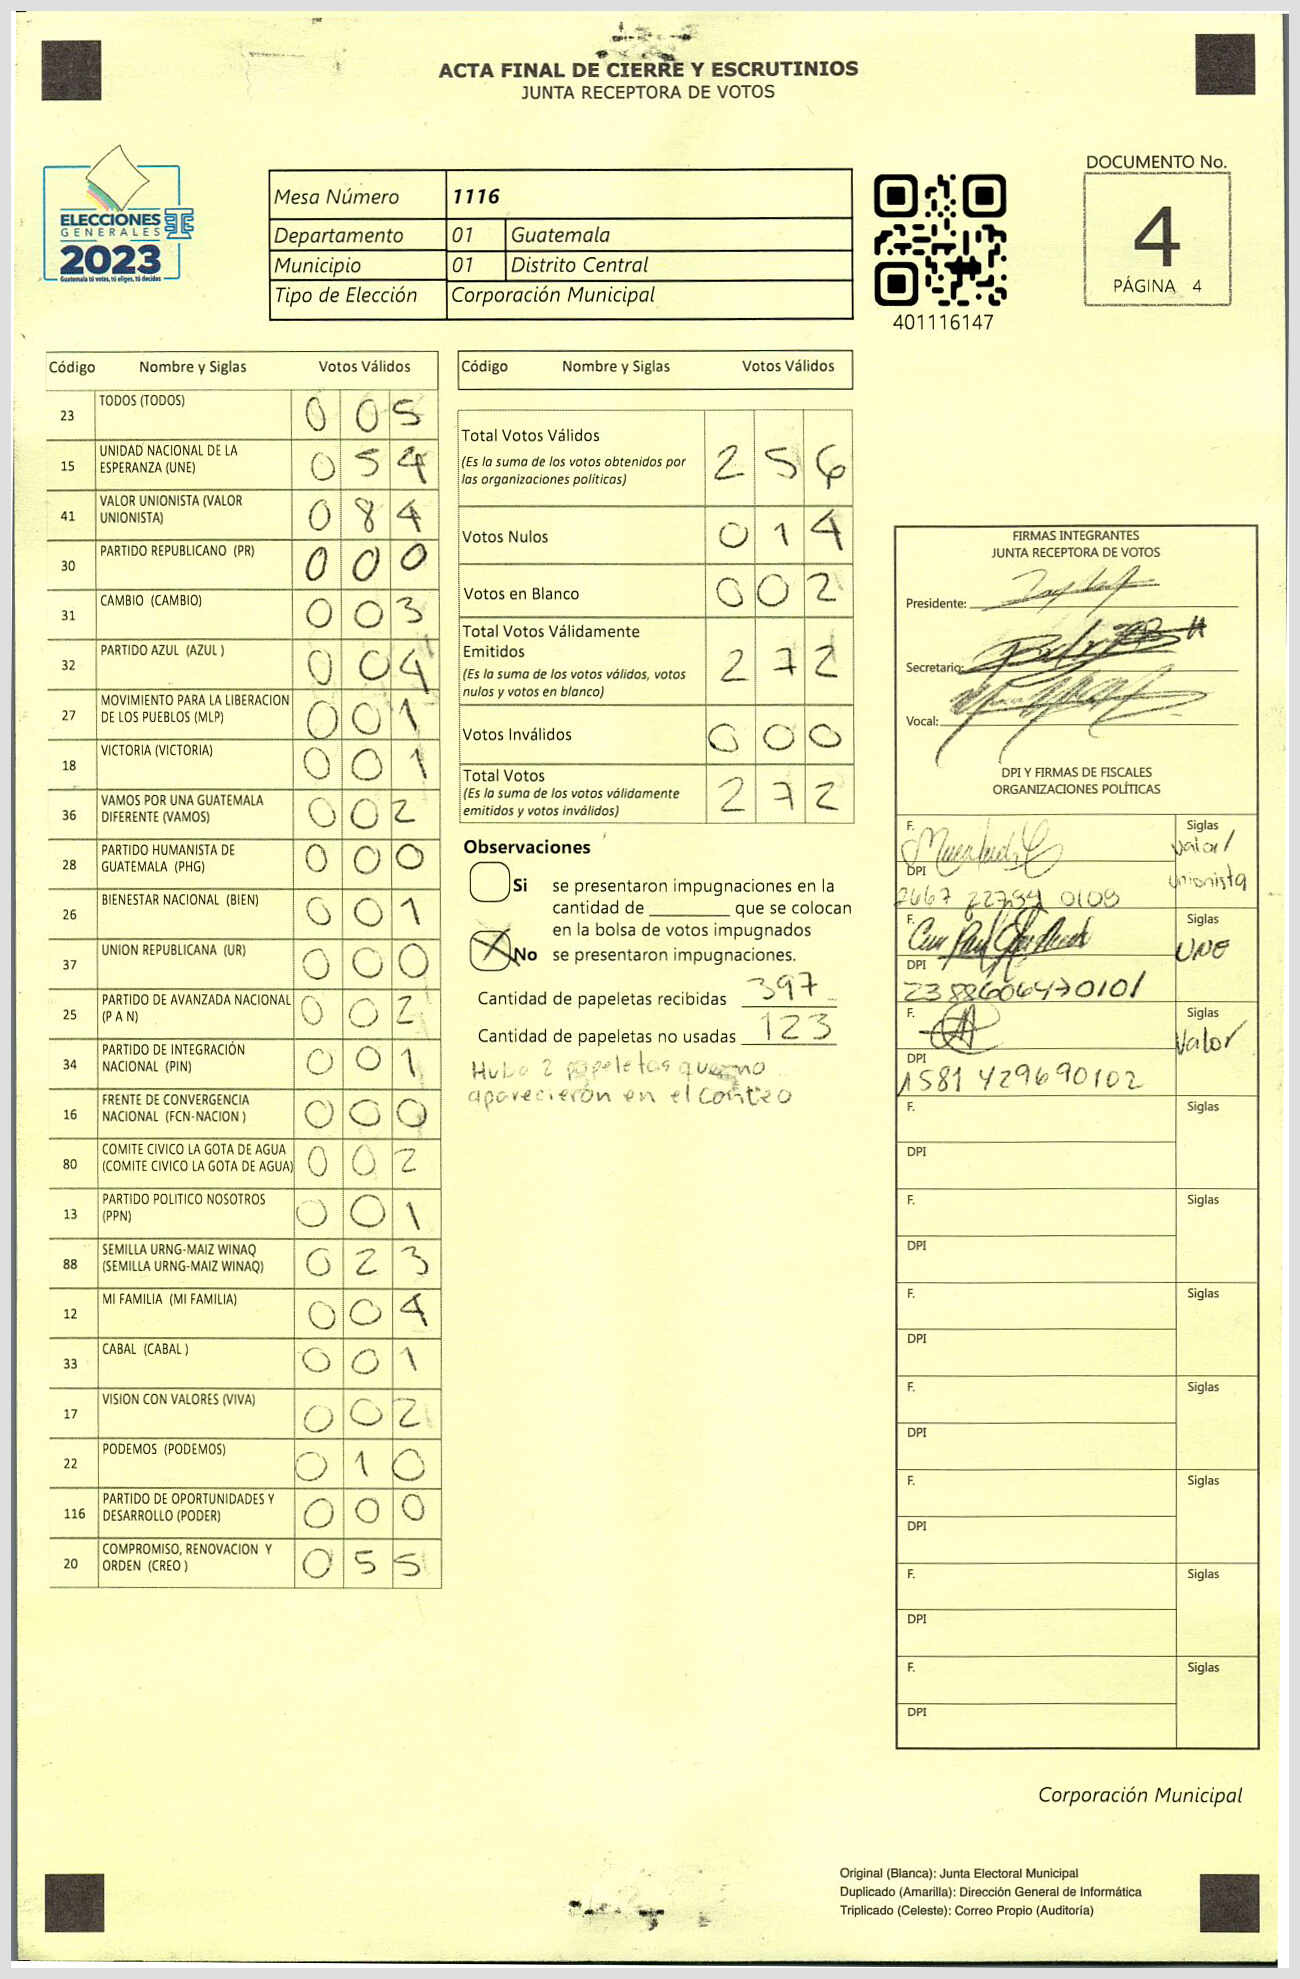 ACTA FINAL DE CIERRE Y ESCRUTINIOS
JUNTA RECEPTORA DE VOTOS
ELECCIONES
GENERALES
2023
Guatemala tú votas, tú eliges, tú decides
Mesa Número 1116
Departamento 01 Guatemala
Municipio 01 Distrito Central
Tipo de Elección Corporación Municipal
401116147
DOCUMENTO No.
4
PÁGINA 4
Código Nombre y Siglas Votos Válidos
23 TODOS (TODOS) 0 0 5
15 UNIDAD NACIONAL DE LA
ESPERANZA (UNE) 0 5 4
41 VALOR UNIONISTA (VALOR
UNIONISTA) 0 8 4
30 PARTIDO REPUBLICANO (PR) 0 0 0
31 CAMBIO (CAMBIO) 0 0 3
32 PARTIDO AZUL (AZUL ) 0 0 4
27 MOVIMIENTO PARA LA LIBERACION
DE LOS PUEBLOS (MLP) 0 0 1
18 VICTORIA (VICTORIA) 0 0 1
36 VAMOS POR UNA GUATEMALA
DIFERENTE (VAMOS) 0 0 2
28 PARTIDO HUMANISTA DE
GUATEMALA (PHG) 0 0 0
26 BIENESTAR NACIONAL (BIEN) 0 0 1
37 UNION REPUBLICANA (UR) 0 0 0
25 PARTIDO DE AVANZADA NACIONAL
(P A N) 0 0 2
34 PARTIDO DE INTEGRACIÓN
NACIONAL (PIN) 0 0 1
16 FRENTE DE CONVERGENCIA
NACIONAL (FCN-NACION ) 0 0 0
80 COMITE CIVICO LA GOTA DE AGUA
(COMITE CIVICO LA GOTA DE AGUA) 0 0 2
13 PARTIDO POLITICO NOSOTROS
(PPN) 0 0 1
88 SEMILLA URNG-MAIZ WINAQ
(SEMILLA URNG-MAIZ WINAQ) 0 2 3
12 MI FAMILIA (MI FAMILIA) 0 0 4
33 CABAL (CABAL ) 0 0 1
17 VISION CON VALORES (VIVA) 0 0 2
22 PODEMOS (PODEMOS) 0 1 0
116 PARTIDO DE OPORTUNIDADES Y
DESARROLLO (PODER) 0 0 0
20 COMPROMISO, RENOVACION Y
ORDEN (CREO ) 0 5 5
Código Nombre y Siglas Votos Válidos
Total Votos Válidos
(Es la suma de los votos obtenidos por
las organizaciones políticas) 2 5 6
Votos Nulos 0 1 4
Votos en Blanco 0 0 2
Total Votos Válidamente
Emitidos
(Es la suma de los votos válidos, votos
nulos y votos en blanco) 2 7 2
Votos Inválidos 0 0 0
Total Votos
(Es la suma de los votos válidamente
emitidos y votos inválidos) 2 7 2
Observaciones
Si se presentaron impugnaciones en la
cantidad de ________ que se colocan
en la bolsa de votos impugnados
No se presentaron impugnaciones.
Cantidad de papeletas recibidas 397
Cantidad de papeletas no usadas 123
Hubo 2 papeletas que no
aparecieron en el conteo
FIRMAS INTEGRANTES
JUNTA RECEPTORA DE VOTOS
Presidente:
Secretario:
Vocal:
DPI Y FIRMAS DE FISCALES
ORGANIZACIONES POLÍTICAS
F. Siglas
Valor
Unionista
DPI
2667 22794 0108
F. Siglas
UNE
DPI
2388606470101
F. Siglas
Valor
DPI
1581 429690102
F. Siglas
DPI
F. Siglas
DPI
F. Siglas
DPI
F. Siglas
DPI
F. Siglas
DPI
F. Siglas
DPI
F. Siglas
DPI
Corporación Municipal
Original (Blanca): Junta Electoral Municipal
Duplicado (Amarilla): Dirección General de Informática
Triplicado (Celeste): Correo Propio (Auditoría)